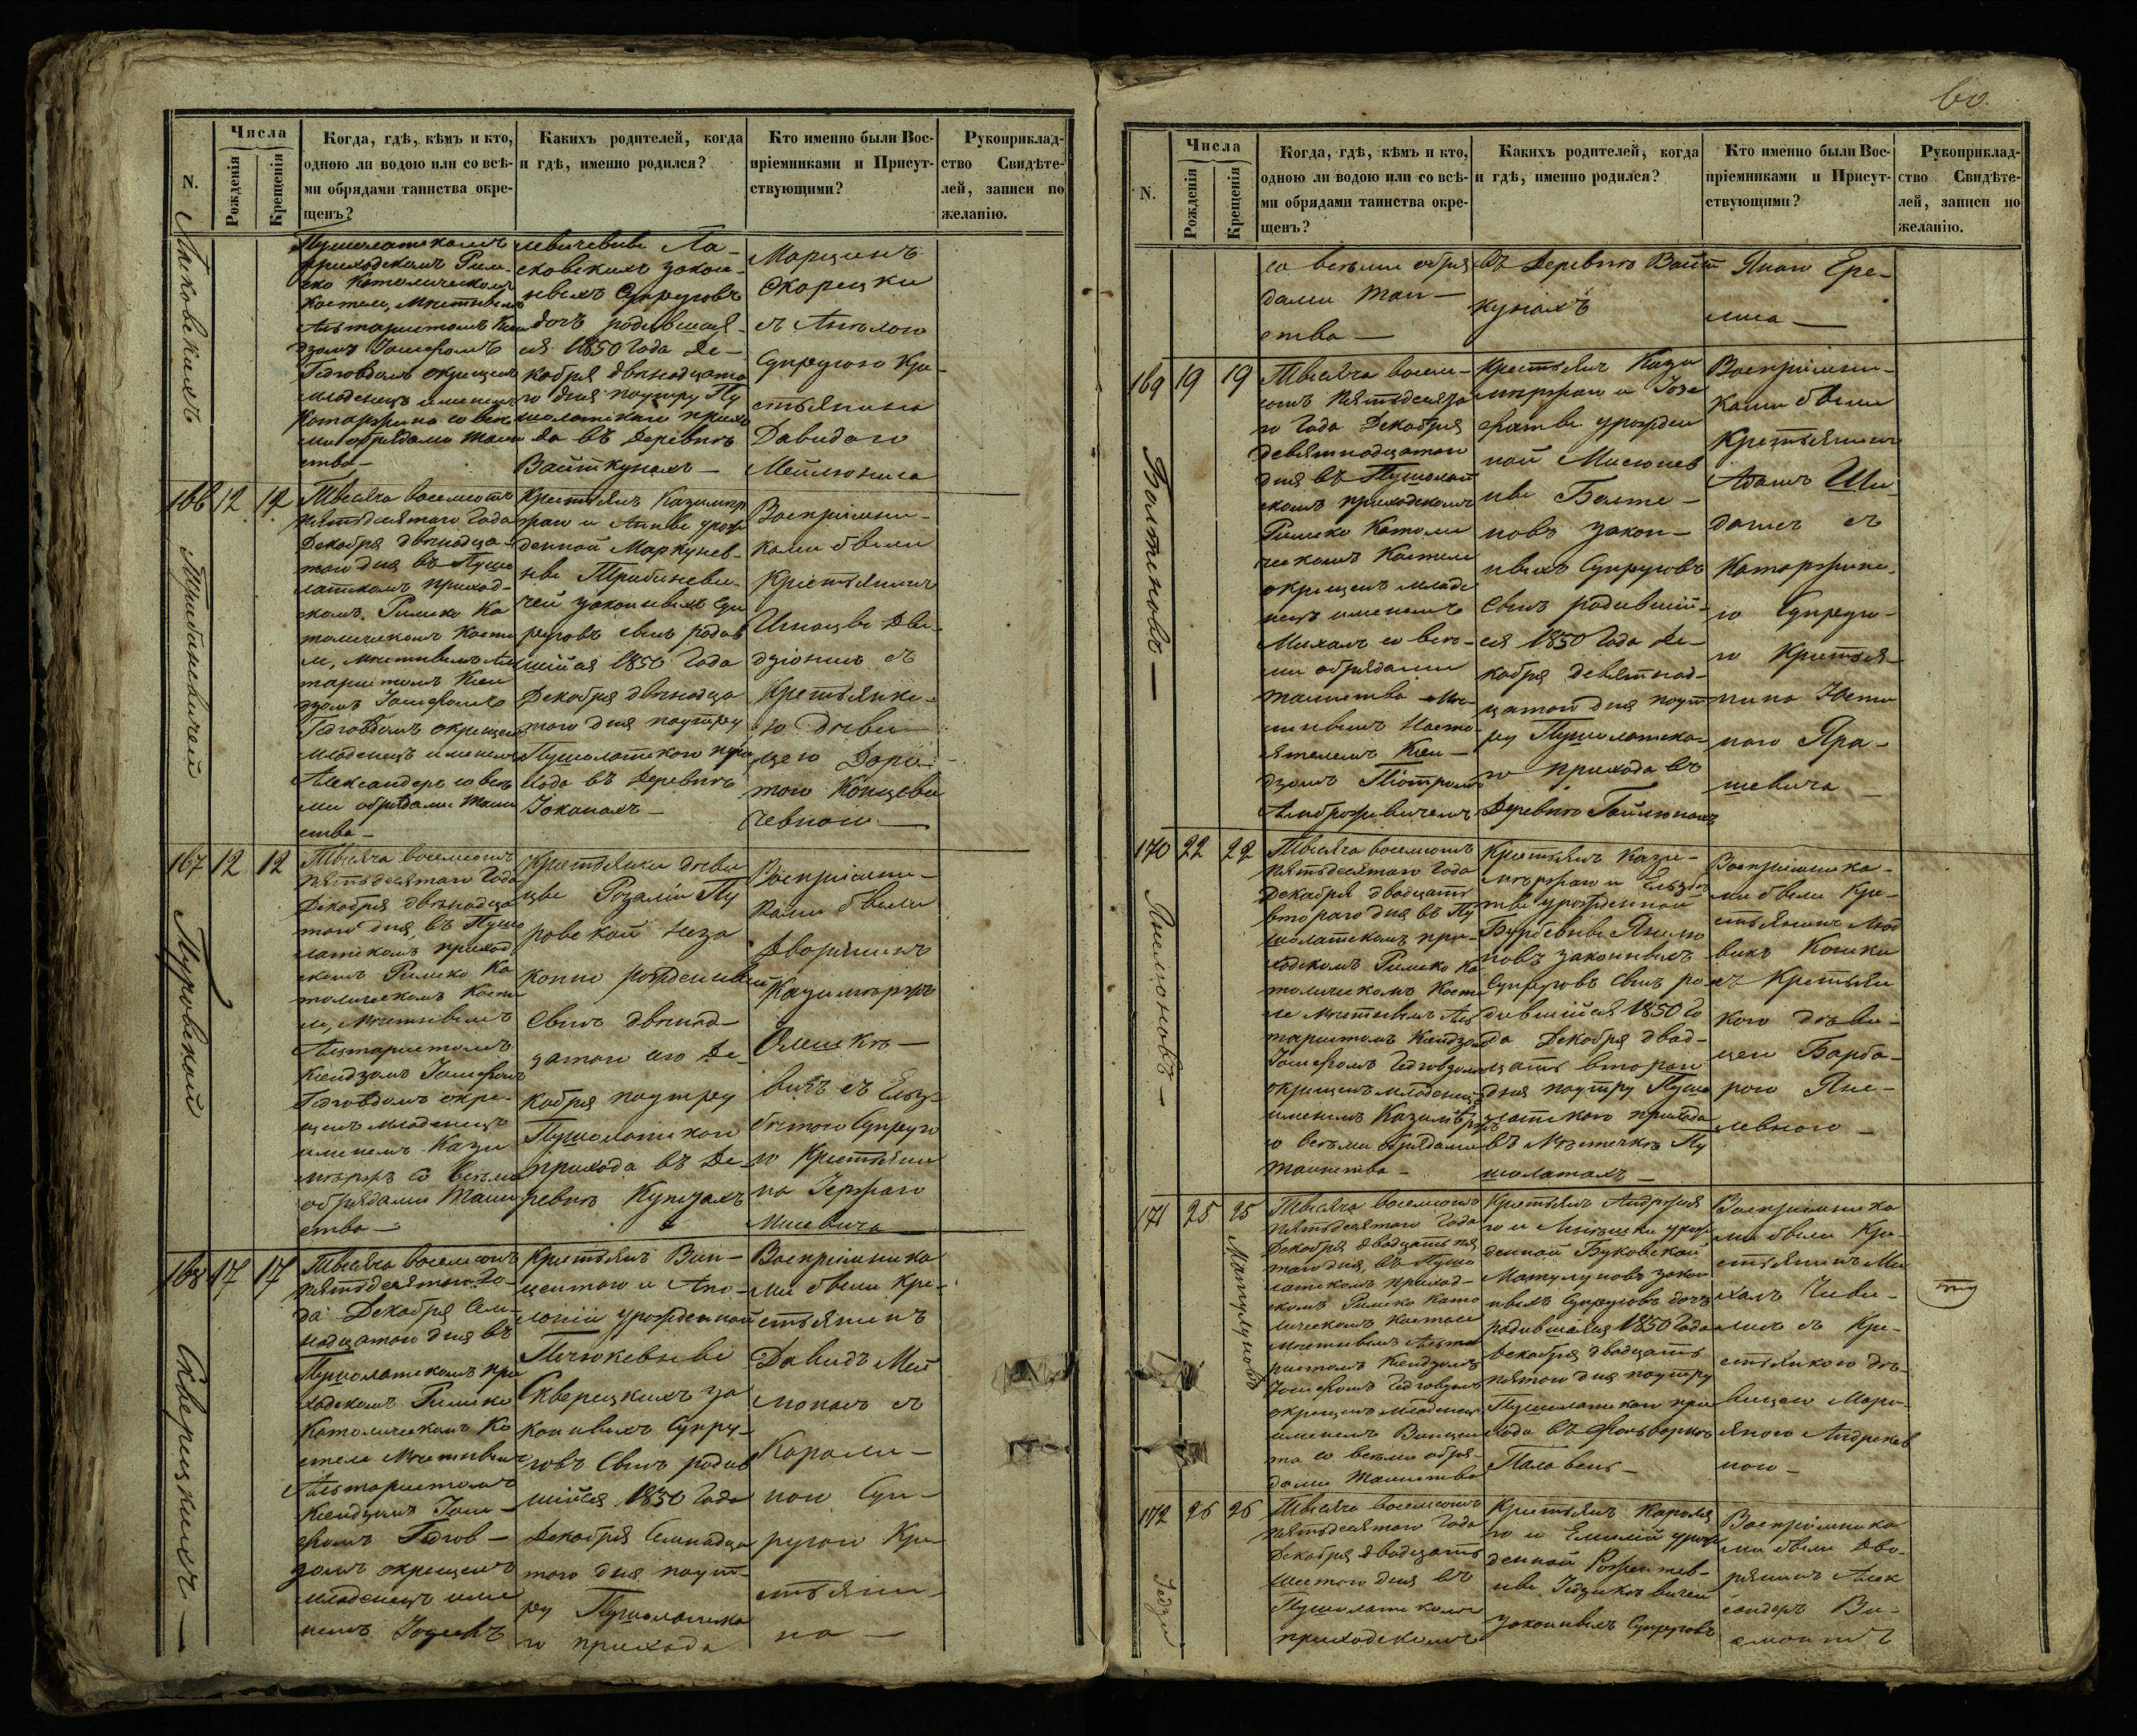 Числа
N.
Рожденія
Крещенія
Когда, гдѣ, кѣмъ и кто,
одною ли водою или со всѣ-
ми обрядами таинства окре-
щенъ?
Какихъ родителей, когда
и гдѣ, именно родился?
Кто именно были Вос-
пріемниками и Присут-
ствующими?
Рукоприклад-
ство Свидѣте-
лей, записи по
желанію.
Пушолатскомъ
приходскомъ Рим-
ско Католическомъ
Костеле, Местнымъ
Альтаристомъ Ксен
дзомъ Іосифомъ
окрещенъ
младенецъ именемъ
Катаржина со всѣ
ми обрядами Таин
ства —
сковскихъ закон-
ныхъ Супруговъ
дочь родившая-
ся 1850 Года Де-
кабря двѣнадцато
го дня поутру Пу
шолатскаго прихо
да въ Деревнѣ
Вайткунахъ —
Марцинъ
Скорецки
съ Анелою
Супругою Кре-
стьянина
Давидого
Мейлюниса
166
12
12
Трибиневичей
Тысяча восемьсотъ
пятьдесятаго Года
Декабря двѣнадца-
таго дня въ Пушо
латскомъ приход-
скомъ Римско Ка
толическомъ Косте
ле, Местнымъ Аль
таристомъ Ксен
дзомъ Іосифомъ
окрещенъ
младенецъ именемъ
Александеръ со всѣ
ми обрядами Таин
ства —
Крестьянъ Казимир
жаго и Анны урож
денной Маркунев-
ны Трибиневи-
чей законныхъ Суп
руговъ сынъ родив
шійся 1850 Года
Декабря двѣнадца
того дня поутру
Пушолатского при
хода въ Деревнѣ
Іоканахъ —
Воспріемни-
ками были
Крестьянинъ
Игнацы Дви-
дзіонисъ съ
Крестьянко-
ю дѣви-
цею Доро-
тою Концеви
чевною —
167
12
12
Пуровской
Тысяча восемьсотъ
пятьдесятаго Года
Декабря двѣнадца
таго дня, въ Пушо
латскомъ приход
скомъ Римско Ка
толическомъ Косте
ле, Местнымъ
Альтаристомъ
Ксендзомъ Іосифомъ
окре-
щенъ младенецъ
именемъ Кази
миржъ со всѣми
обрядами Таин
ства —
Крестьянки дѣви
цы Розаліи Пу
ровской неза
конно рожденный
Сынъ двѣнад-
цатого Де-
кабря поутру
Пушолатскаго
прихода въ Де
ревнѣ Купчахъ
Воспріемни-
ками были
Дворянинъ
Казимиржъ
Олешке-
вичъ съ Ельз-
бѣтою Супруго
ю Крестьяни
на Іержаго
Мисевича
168
17
17
Скверецкихъ —
Тысяча восемьсотъ
пятьдесятаго Го-
да Декабря Сем-
надцатаго дня въ
Пушолатскомъ при
ходскомъ Римско
Католическомъ Ко
стеле Местнымъ
Альтаристомъ
Ксендзомъ Іоси-
фомъ
окрещенъ
младенецъ име
немъ Іозефъ
Крестьянъ Вин-
центаго и Апо-
лоніи урожденной
Скверецкихъ за
конныхъ Супру-
говъ Сынъ родив
шійся 1850 Года
Декабря Семнадца
того дня поут-
ру Пушолатска
го прихода
Воспріемника
ми были Кре-
стьянинъ
Давидъ Мей
люнасъ съ
Кароли-
ною Суп-
ругою Кре-
стьяни-
на —
60.
Числа
N.
Рожденія
Крещенія
Когда, гдѣ, кѣмъ и кто,
одною ли водою или со всѣ-
ми обрядами таинства окре-
щенъ?
Какихъ родителей, когда
и гдѣ, именно родился?
Кто именно были Вос-
пріемниками и Присут-
ствующими?
Рукоприклад-
ство Свидѣте-
лей, записи по
желанію.
со всѣми обря-
дами Таин-
ства —
въ Деревнѣ Вайт
кунахъ
Яного Ере-
миса —
169
19
19
Балтыновъ —
Тысяча восемь-
сотъ пятьдесята
го Года Декабря
девятнадцатаго
дня въ Пушолат
скомъ приходскомъ
Римско Католи
ческомъ Костеле
окрещенъ младе
нецъ именемъ
Михалъ со всѣ-
ми обрядами
таинства Ме-
стнымъ Насто-
ятелемъ Ксен-
дзомъ Піотромъ
Амброжевичемъ
Крестьянъ Кази
миржаго и Іозе
фаты урожден
ной
законн-
ныхъ Супруговъ
Сынъ родившій-
ся 1850 Года Де-
кабря девятнад-
цатаго дня поут
ру Пушолатска-
го прихода въ
Деревнѣ Гайлюнахъ
Воспріемни-
ками были
Крестьянинъ
Адамъ
съ
Катаржино-
ю Супруго-
ю Крестья-
нина Юсти
ного Яра-
шевича —
170
22
22
Янелюновъ —
Тысяча восемьсотъ
пятьдесятаго Года
Декабря двадцать
втораго дня въ Пу
шолатскомъ при-
ходскомъ Римско Ка
толическомъ Косте
ле Местнымъ Аль
таристомъ Ксендзом
Іосифомъ
окрещенъ младенецъ
именемъ Казимиржъ
со всѣми обрядами
таинства —
Крестьянъ Кази-
миржаго и Ельзбѣ
ты урожденной
Янелю
новъ законныхъ
Супруговъ Сынъ ро
дившійся 1850 Го
да Декабря двад-
цать второго
дня поутру Пушо
латского прихода
въ Мѣстечкѣ Пу
шолатахъ —
Воспріемника-
ми были Кре-
стьянинъ Люд
викъ Кошки
съ Крестьян
кою дѣви-
цею Барба-
рою Яне-
левною —
171
25
25
Матулуновъ
Тысяча восемьсотъ
пятьдесятаго Года
Декабря двадцать пя
таго дня, въ Пушо
латскомъ приход-
скомъ Римско Като
лическомъ Костеле
Местнымъ Альта
ристомъ Ксендзомъ
Іосифомъ
окрещенъ младенецъ
именемъ Винцен
та со всѣми обря-
дами Таинства
Крестьянъ Андржея
го и
денной Буковской
Матулуновъ закон
ныхъ Супруговъ дочь
родившаяся 1850 Года
Декабря двадцать
пятого дня поутру
Пушолатскаго при
хода въ Фольваркѣ
Воспріемника
ми были Кре-
стьянинъ Ми
халъ Чиви-
лисъ съ Кре-
стьянкою дѣ-
вицею Мары-
яною Андрекев
ною —
172
26
26
Тысяча восемьсотъ
пятьдесятаго Года
Декабря двадцать
шестого дня въ
Пушолатскомъ
приходскомъ
Крестьянъ Кароля
го и Емиліи урож
денной
законныхъ Супруговъ
Воспріемника
ми были Дво-
рянинъ Алек
сандеръ